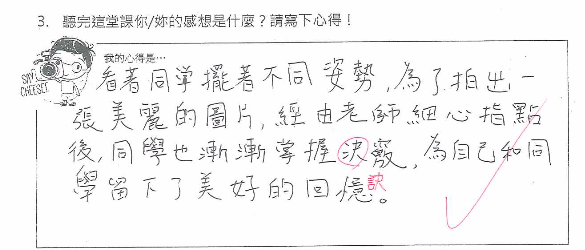 3. 聽完這堂課你/妳的感想是什麼？請寫下心得！
我的心得是…
SAY CHEESE!
看著同学擺著不同姿勢，為了拍出一
張美麗的圖片，經由老師細心指點
後，同學也漸漸掌握決竅，為自己和同
學留下了美好的回憶。
訣